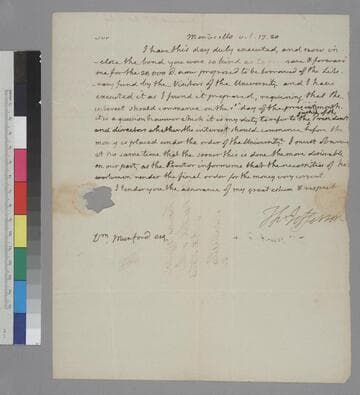 Sir Monticello Oct. 17. 20
I have this day duly executed, and now in
-close the bond you were so kind as to & forward
me for the 20,000 D. now proposed to be borrowed of the Lite-
rary fund by the Visitors of the University and I have
executed it as I found it prepared, requiring that the
interest should commence on the 1st day of the month.
it is a question however which it is my duty to refer to the President
and directors whether the interest should commence before the
money is placed under the order of the University? I must observe
at the same time that the sooner this is done the more desirable
on our part, as the Proctor informs me that the necessities of the
workmen render the final order for the money very urgent.
I tender you the assurance of my great esteem & respect
Th: Jefferson
Wm Munford esq.